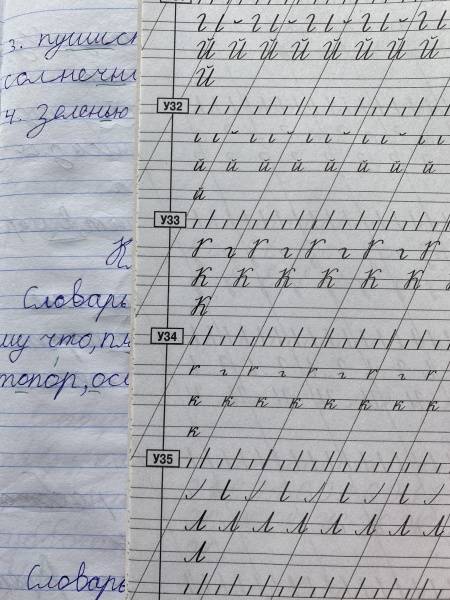 з. пушист
солнечны
4. Зеленью
К
Словарь
му что, пл
топор, ос
Словарь
Й Й Й Й Й Й Й Й
Й
У32
й й й й й й й й
й
У33
К К К К К К
К
У34
к к к к к к к к
к
У35
Л Л Л Л Л Л Л Л
Л